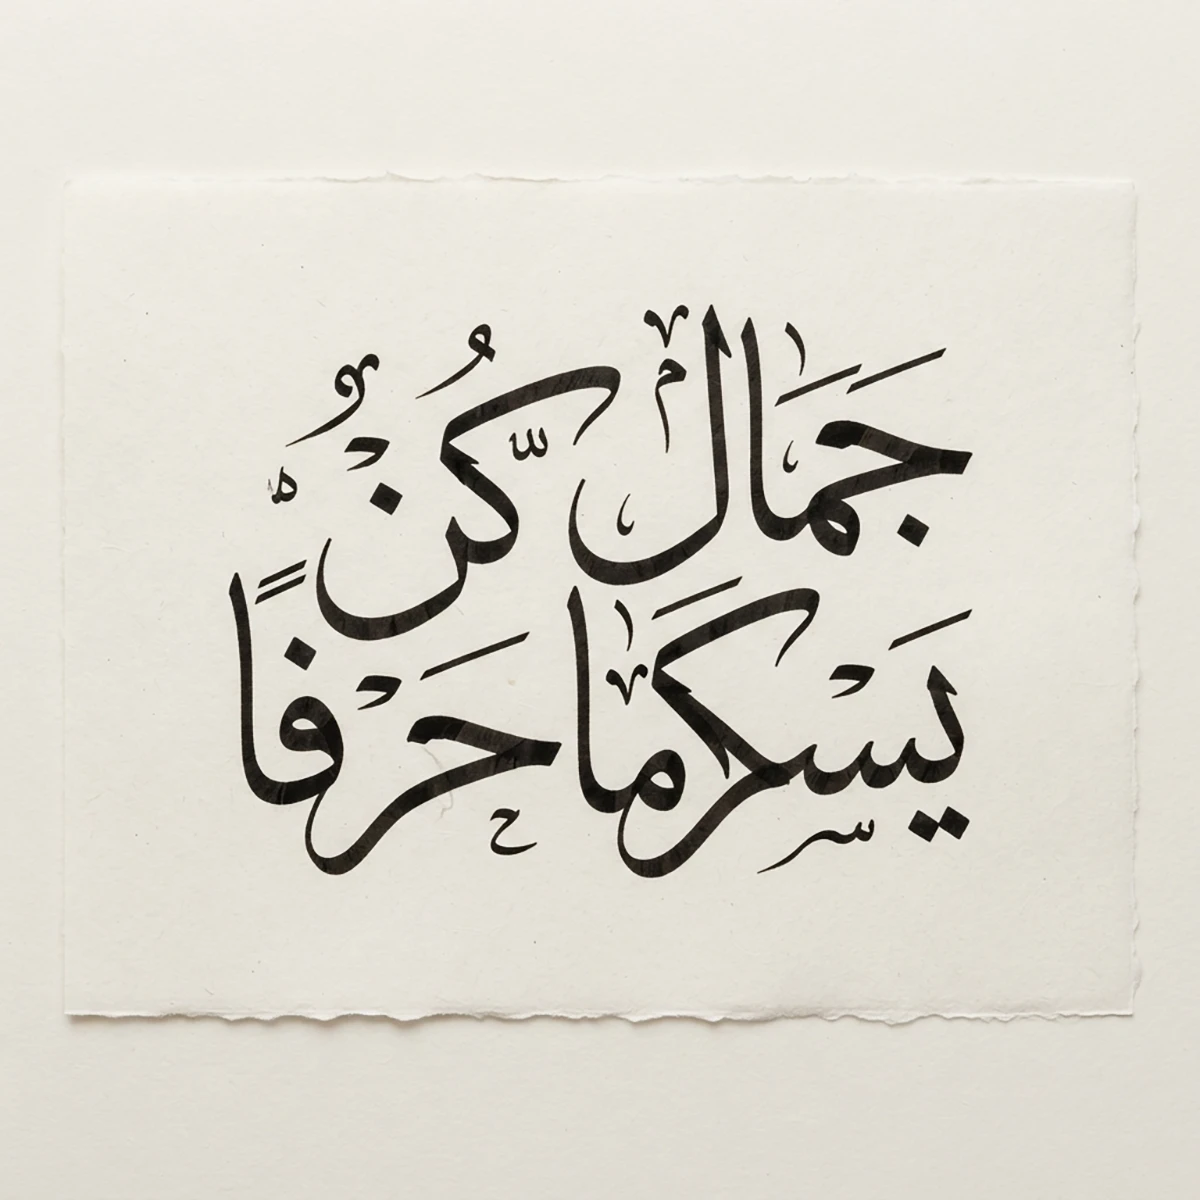 جَمَال كُنْ
يَسْكَرَما حَرْفًا